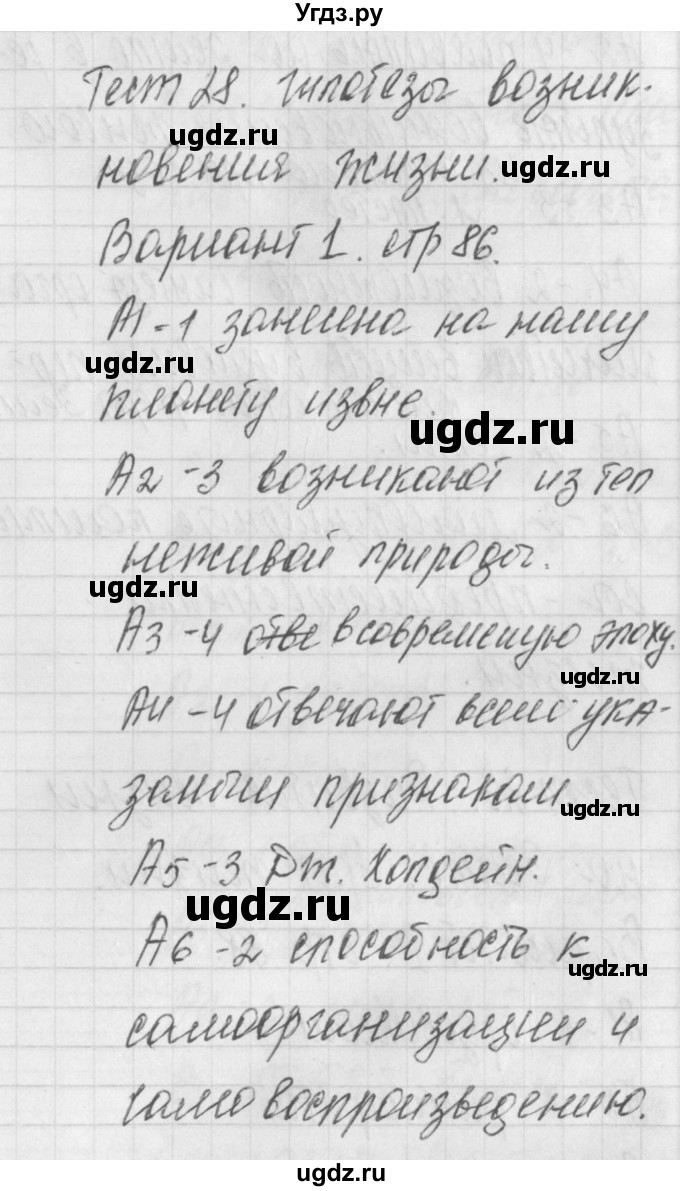 Угдз.ру
Тест 28. Гипотезы возник-
ugdz.ru
новения жизни. ugdz.ru
Вариант 1. стр 86.
А1-1 занесена на нашу
ugdz.ru
планету извне.
ugdz.ru
А2-3 возникают из тел
неживой природы.
ugdz.ru
А3-4 отве в современную эпоху.
ugdz.ru
А4-4 отвечают всем ука-
занным признакам
ugdz.ru
А5-3 Дж. Холдейн.
ugdz.ru
А6-2 способность к
ugdz.ru
самоорганизации и
самовоспроизведению.
ugdz.ru